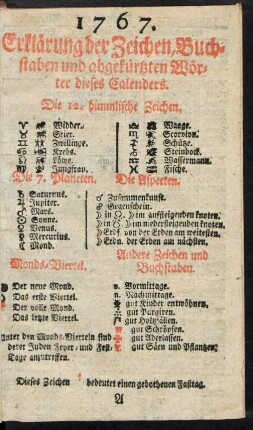 1767.
Erklärung der Zeichen, Buch-
staben und abgekürtzten Wör-
ter dieses Calenders.
Die 12. himmlische Zeichen.
♈ Widder. ♎ Waage.
♉ Stier. ♏ Scorpion.
♊ Zwillinge. ♐ Schütze.
♋ Krebs. ♑ Steinbock.
♌ Löwe. ♒ Wassermann.
♍ Jungfrau. ♓ Fische.
Die 7. Planeten.
♄ Saturnus.
♃ Jupiter.
♂ Mars.
☉ Sonne.
♀ Venus.
☿ Mercurius.
☾ Mond.
Die Aspecten.
☌ Zusammenkunft.
☍ Gegenschein.
☽ in ☊ ☽ im aufsteigenden knoten.
☽ in ☋ ☽ im niedersteigenden knoten.
☽ Erf. von der Erden am weitesten.
☽ Erdn. der Erden am nächsten.
Monds-Viertel.
Der neue Mond.
Das erste Viertel.
Der volle Mond.
Das letzte Viertel.
Unter den Monds-Vierteln sind
derer Juden Feyer- und Fest-
Tage anzutreffen.
Andere Zeichen und
Buchstaben.
v. Vormittage.
n. Nachmittage.
gut Kinder entwöhnen.
gut Purgiren.
gut Holtzfällen
gut Schröpfen.
gut Aderlassen.
gut Säen und Pflantzen.
Dieses Zeichen † bedeutet einen gebothenen Fasttag.
A